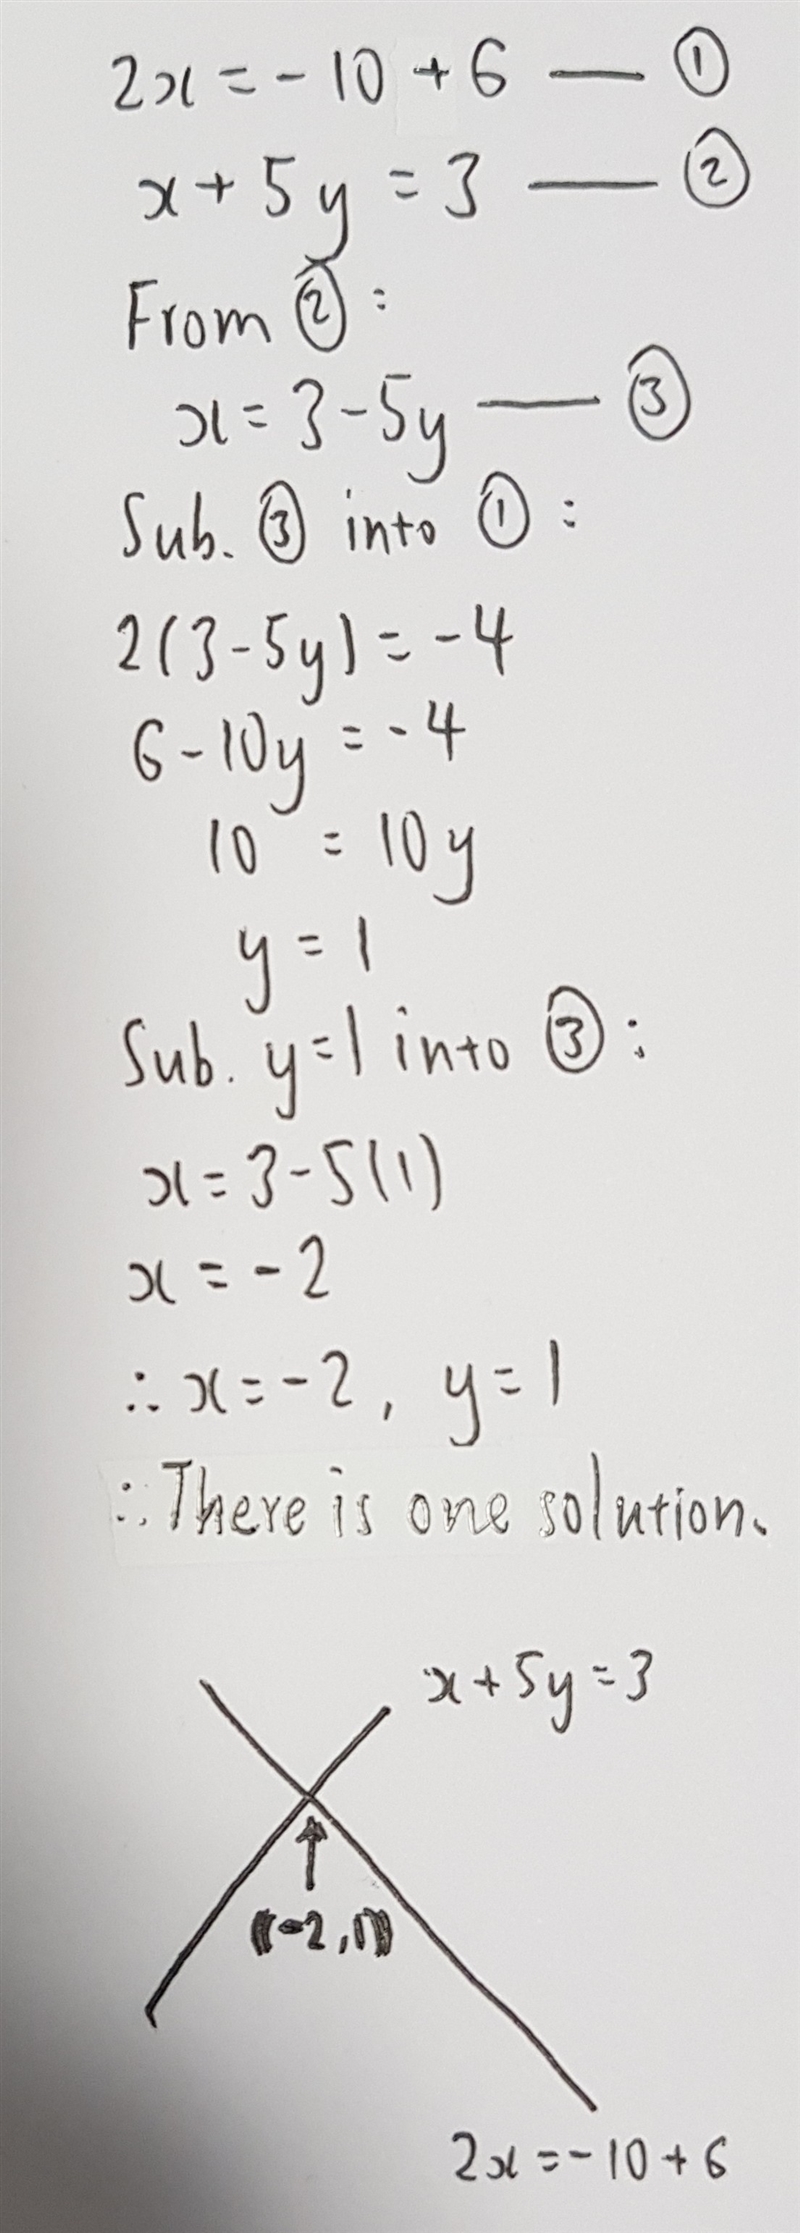 2x = -10 + 6 — ①
x + 5y = 3 — ②
From ②:
x = 3 - 5y — ③
Sub. ③ into ①:
2(3 - 5y) = -4
6 - 10y = -4
10 = 10y
y = 1
Sub. y = 1 into ③:
x = 3 - 5(1)
x = -2
∴ x = -2, y = 1
∴ There is one solution.
x + 5y = 3
(-2, 1)
2x = -10 + 6